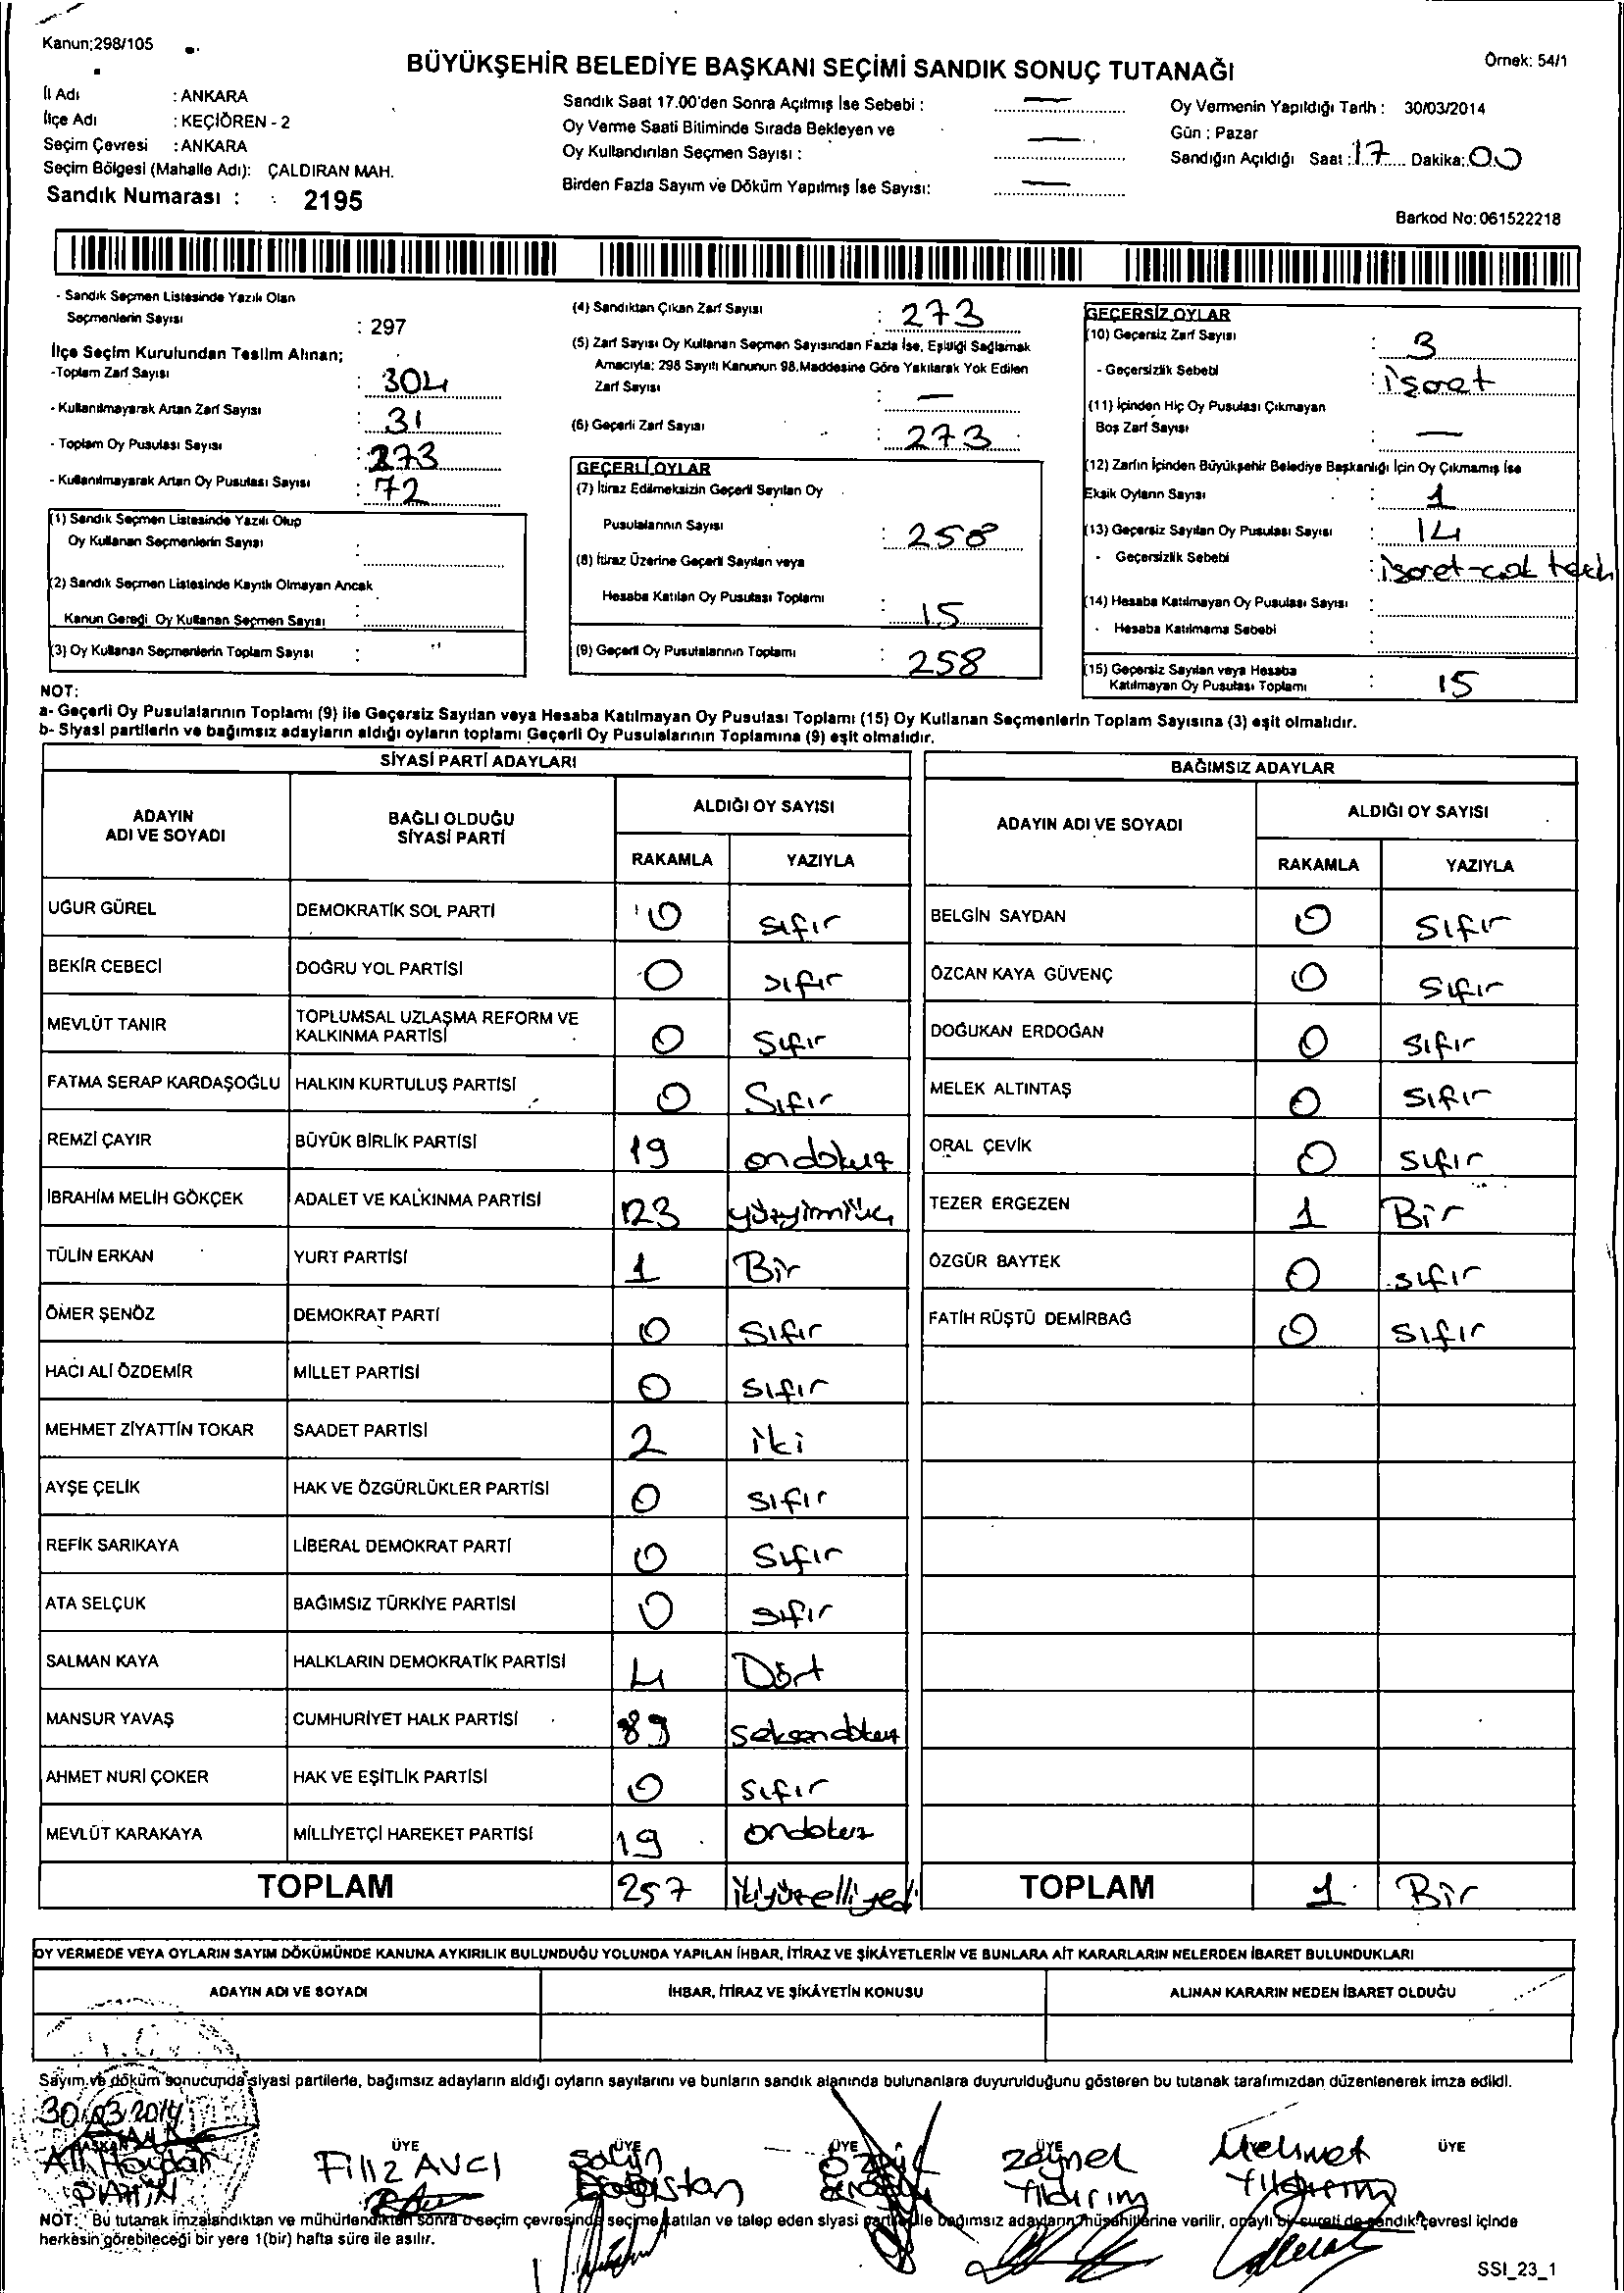 Kanun:298/105
BÜYÜKŞEHİR BELEDİYE BAŞKANI SEÇİMİ SANDIK SONUÇ TUTANAĞI
Örnek: 54/1
İl Adı : ANKARA
İlçe Adı : KEÇİÖREN - 2
Seçim Çevresi : ANKARA
Seçim Bölgesi (Mahalle Adı): ÇALDIRAN MAH.
Sandık Numarası : 2195
Sandık Saat 17.00'den Sonra Açılmış İse Sebebi : —
Oy Verme Saati Bitiminde Sırada Bekleyen ve
Oy Kullandırılan Seçmen Sayısı : —
Birden Fazla Sayım ve Döküm Yapılmış İse Sayısı: —
Oy Vermenin Yapıldığı Tarih : 30/03/2014
Gün : Pazar
Sandığın Açıldığı Saat : 17 Dakika: 00
Barkod No: 061522218
- Sandık Seçmen Listesinde Yazılı Olan
Seçmenlerin Sayısı : 297
İlçe Seçim Kurulundan Teslim Alınan;
-Toplam Zarf Sayısı : 304
- Kullanılmayarak Artan Zarf Sayısı : 31
- Toplam Oy Pusulası Sayısı : 273
- Kullanılmayarak Artan Oy Pusulası Sayısı : 72
(1) Sandık Seçmen Listesinde Yazılı Olup
Oy Kullanan Seçmenlerin Sayısı :
(2) Sandık Seçmen Listesinde Kayıtlı Olmayan Ancak
Kanun Gereği Oy Kullanan Seçmen Sayısı :
(3) Oy Kullanan Seçmenlerin Toplam Sayısı :
(4) Sandıktan Çıkan Zarf Sayısı : 273
(5) Zarf Sayısı Oy Kullanan Seçmen Sayısından Fazla İse, Eşitliği Sağlamak
Amacıyla: 298 Sayılı Kanunun 98.Maddesine Göre Yakılarak Yok Edilen
Zarf Sayısı : —
(6) Geçerli Zarf Sayısı : 273
GEÇERLİ OYLAR
(7) İtiraz Edilmeksizin Geçerli Sayılan Oy
Pusulalarının Sayısı : 258
(8) İtiraz Üzerine Geçerli Sayılan veya
Hesaba Katılan Oy Pusulası Toplamı : 15
(9) Geçerli Oy Pusulalarının Toplamı : 258
GEÇERSİZ OYLAR
(10) Geçersiz Zarf Sayısı : 3
- Geçersizlik Sebebi : işaret
(11) İçinden Hiç Oy Pusulası Çıkmayan
Boş Zarf Sayısı : —
(12) Zarfın İçinden Büyükşehir Belediye Başkanlığı İçin Oy Çıkmamış İse
Eksik Oyların Sayısı : 1
(13) Geçersiz Sayılan Oy Pusulası Sayısı : 14
- Geçersizlik Sebebi : işaret-çok
(14) Hesaba Katılmayan Oy Pusulası Sayısı :
- Hesaba Katılmama Sebebi :
(15) Geçersiz Sayılan veya Hesaba
Katılmayan Oy Pusulası Toplamı : 15
NOT:
a- Geçerli Oy Pusulalarının Toplamı (9) ile Geçersiz Sayılan veya Hesaba Katılmayan Oy Pusulası Toplamı (15) Oy Kullanan Seçmenlerin Toplam Sayısına (3) eşit olmalıdır.
b- Siyasi partilerin ve bağımsız adayların aldığı oyların toplamı Geçerli Oy Pusulalarının Toplamına (9) eşit olmalıdır.
SİYASİ PARTİ ADAYLARI
ADAYIN ADI VE SOYADI BAĞLI OLDUĞU SİYASİ PARTİ ALDIĞI OY SAYISI
RAKAMLA YAZIYLA
UĞUR GÜREL DEMOKRATİK SOL PARTİ 0 sıfır
BEKİR CEBECİ DOĞRU YOL PARTİSİ 0 sıfır
MEVLÜT TANIR TOPLUMSAL UZLAŞMA REFORM VE KALKINMA PARTİSİ 0 Sıfır
FATMA SERAP KARDAŞOĞLU HALKIN KURTULUŞ PARTİSİ 0 Sıfır
REMZİ ÇAYIR BÜYÜK BİRLİK PARTİSİ 19 ondokuz
İBRAHİM MELİH GÖKÇEK ADALET VE KALKINMA PARTİSİ 123 yüzyirmiüç
TÜLİN ERKAN YURT PARTİSİ 1 Bir
ÖMER ŞENÖZ DEMOKRAT PARTİ 0 Sıfır
HACI ALİ ÖZDEMİR MİLLET PARTİSİ 0 sıfır
MEHMET ZİYATTİN TOKAR SAADET PARTİSİ 2 iki
AYŞE ÇELİK HAK VE ÖZGÜRLÜKLER PARTİSİ 0 sıfır
REFİK SARIKAYA LİBERAL DEMOKRAT PARTİ 0 Sıfır
ATA SELÇUK BAĞIMSIZ TÜRKİYE PARTİSİ 0 sıfır
SALMAN KAYA HALKLARIN DEMOKRATİK PARTİSİ 4 Dört
MANSUR YAVAŞ CUMHURİYET HALK PARTİSİ 89 Seksendokuz
AHMET NURİ ÇOKER HAK VE EŞİTLİK PARTİSİ 0 sıfır
MEVLÜT KARAKAYA MİLLİYETÇİ HAREKET PARTİSİ 19 ondokuz
TOPLAM 257 ikiyüzelliyedi
BAĞIMSIZ ADAYLAR
ADAYIN ADI VE SOYADI ALDIĞI OY SAYISI
RAKAMLA YAZIYLA
BELGİN SAYDAN 0 Sıfır
ÖZCAN KAYA GÜVENÇ 0 Sıfır
DOĞUKAN ERDOĞAN 0 sıfır
MELEK ALTINTAŞ 0 sıfır
ORAL ÇEVİK 0 sıfır
TEZER ERGEZEN 1 Bir
ÖZGÜR BAYTEK 0 sıfır
FATİH RÜŞTÜ DEMİRBAĞ 0 sıfır
TOPLAM 1 Bir
OY VERMEDE VEYA OYLARIN SAYIM DÖKÜMÜNDE KANUNA AYKIRILIK BULUNDUĞU YOLUNDA YAPILAN İHBAR, İTİRAZ VE ŞİKÂYETLERİN VE BUNLARA AİT KARARLARIN NELERDEN İBARET BULUNDUKLARI
ADAYIN ADI VE SOYADI İHBAR, İTİRAZ VE ŞİKÂYETİN KONUSU ALINAN KARARIN NEDEN İBARET OLDUĞU
Sayım ve döküm sonucunda siyasi partilerle, bağımsız adayların aldığı oyların sayılarını ve bunların sandık alanında bulunanlara duyurulduğunu gösteren bu tutanak tarafımızdan düzenlenerek imza edildi.
30/03/2014
BAŞKAN ÜYE ÜYE ÜYE ÜYE ÜYE
Ali Haydar ŞAHİN
FİLİZ AVCI
Zeynel Yıldırım
Mehmet Yıldırım
NOT: Bu tutanak imzalandıktan ve mühürlendikten sonra o seçim çevresinde seçime katılan ve talep eden siyasi parti ile bağımsız adayların müşahitlerine verilir, onaylı bir sureti de sandık çevresi içinde
herkesin görebileceği bir yere 1(bir) hafta süre ile asılır.
SSI_23_1